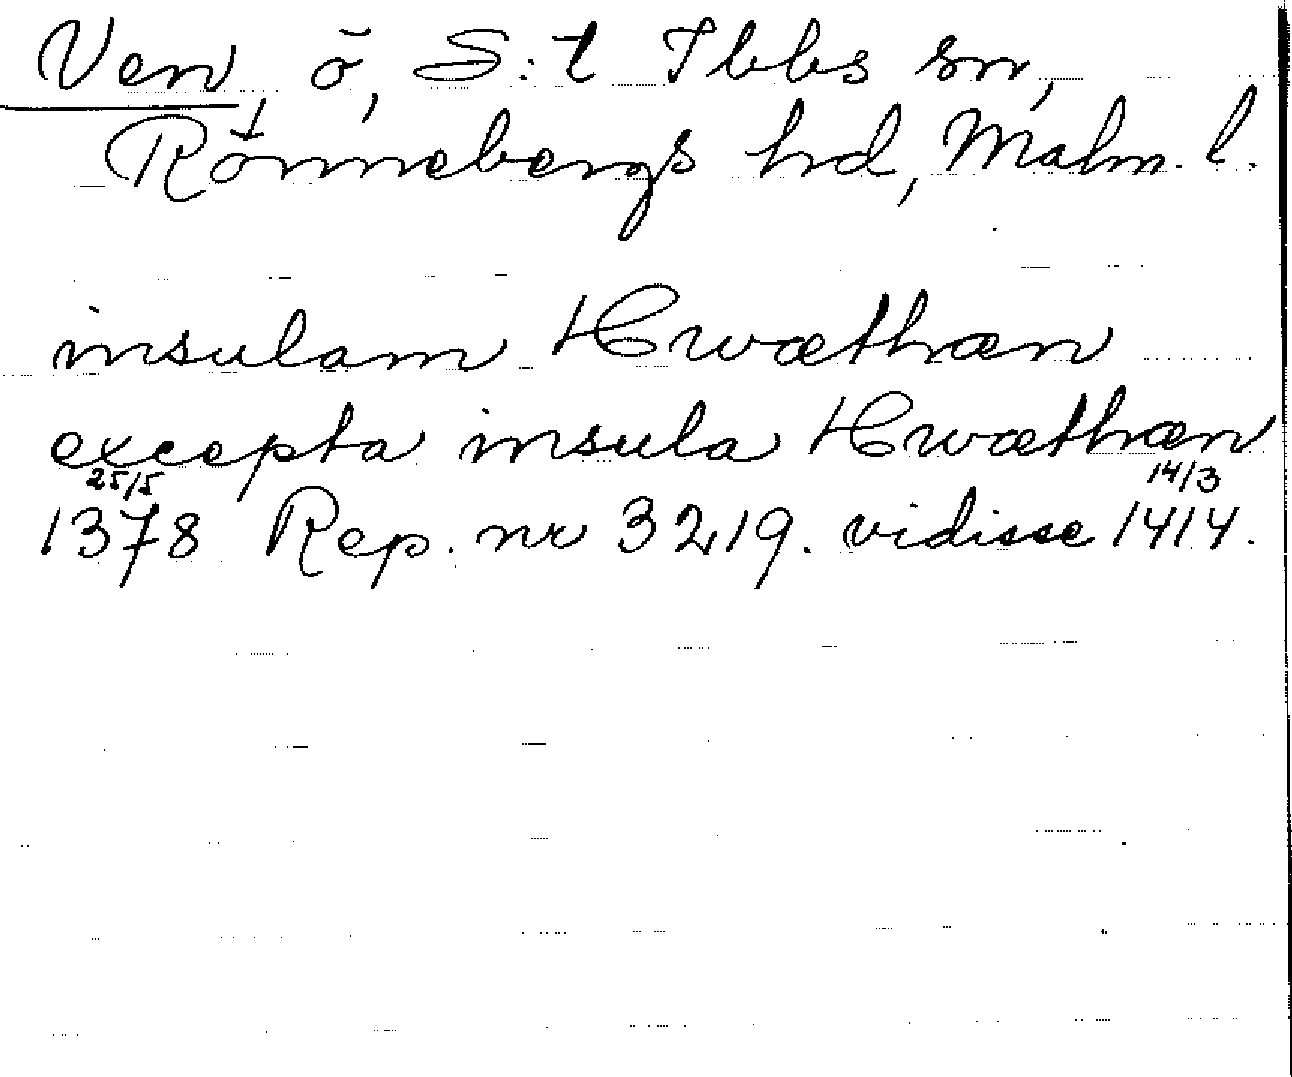 Ven, ö, S:t Ibbs sn,
Rönnebergs hd, Malm. l.
insulam Hwæthæn
excepta insula Hwæthæn
25/5 14/3
1378 Rep. nr 3219. vidisse 1414.